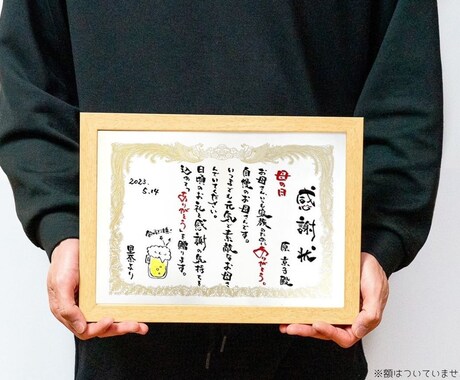 感謝状
原 京子殿
母の日
お母さんいつも家族のためにありがとう。
自慢のお母さんです。
いつまでも元気で素敵なお母さ
んでいてください。
日頃のお礼と感謝の気持ちを
込めて、ありがとうを贈ります。
2023.
5.14
里奈より
※額はついていませ